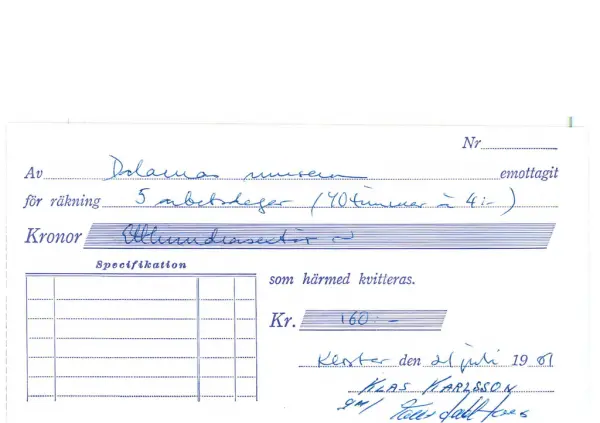 Nr
Av Dalarnas museum emottagit
för räkning 5 arbetsdagar (40 timmar à 4:-)
Kronor Etthundrasextio
Specifikation
som härmed kvitteras.
Kr. 160:-
Kloster den 21 juli 1961
KLAS KARLSSON
gm/